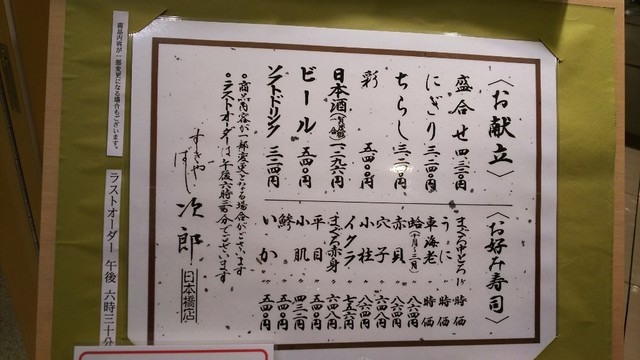 〈お献立〉
盛合せ 四、三二〇円
にぎり 三、二四〇円
ちらし 三、二四〇円
彩 五、四〇〇円
日本酒 一、二九六円
ビール 五四〇円
ソフトドリンク 三二四円
〈お好み寿司〉
まぐろ中とろ 時価
うに 〃 時価
車海老 〃 時価
蛤(十月〜三月) 〃 八六四円
赤貝 〃 八六四円
穴子 〃 六四八円
小柱 〃 八六四円
イクラ 〃 七五六円
まぐろ赤身 〃 六四八円
平目 〃 五四〇円
小肌 〃 四三二円
鯵 〃 五四〇円
いか 〃 五四〇円
○商品内容が一部変更となる場合がございます
○ラストオーダーは午後六時三十分でございます
すきやばし
次郎
日本橋店
商品内容が一部変更になる場合もございます。
ラストオーダー 午後 六時三十分